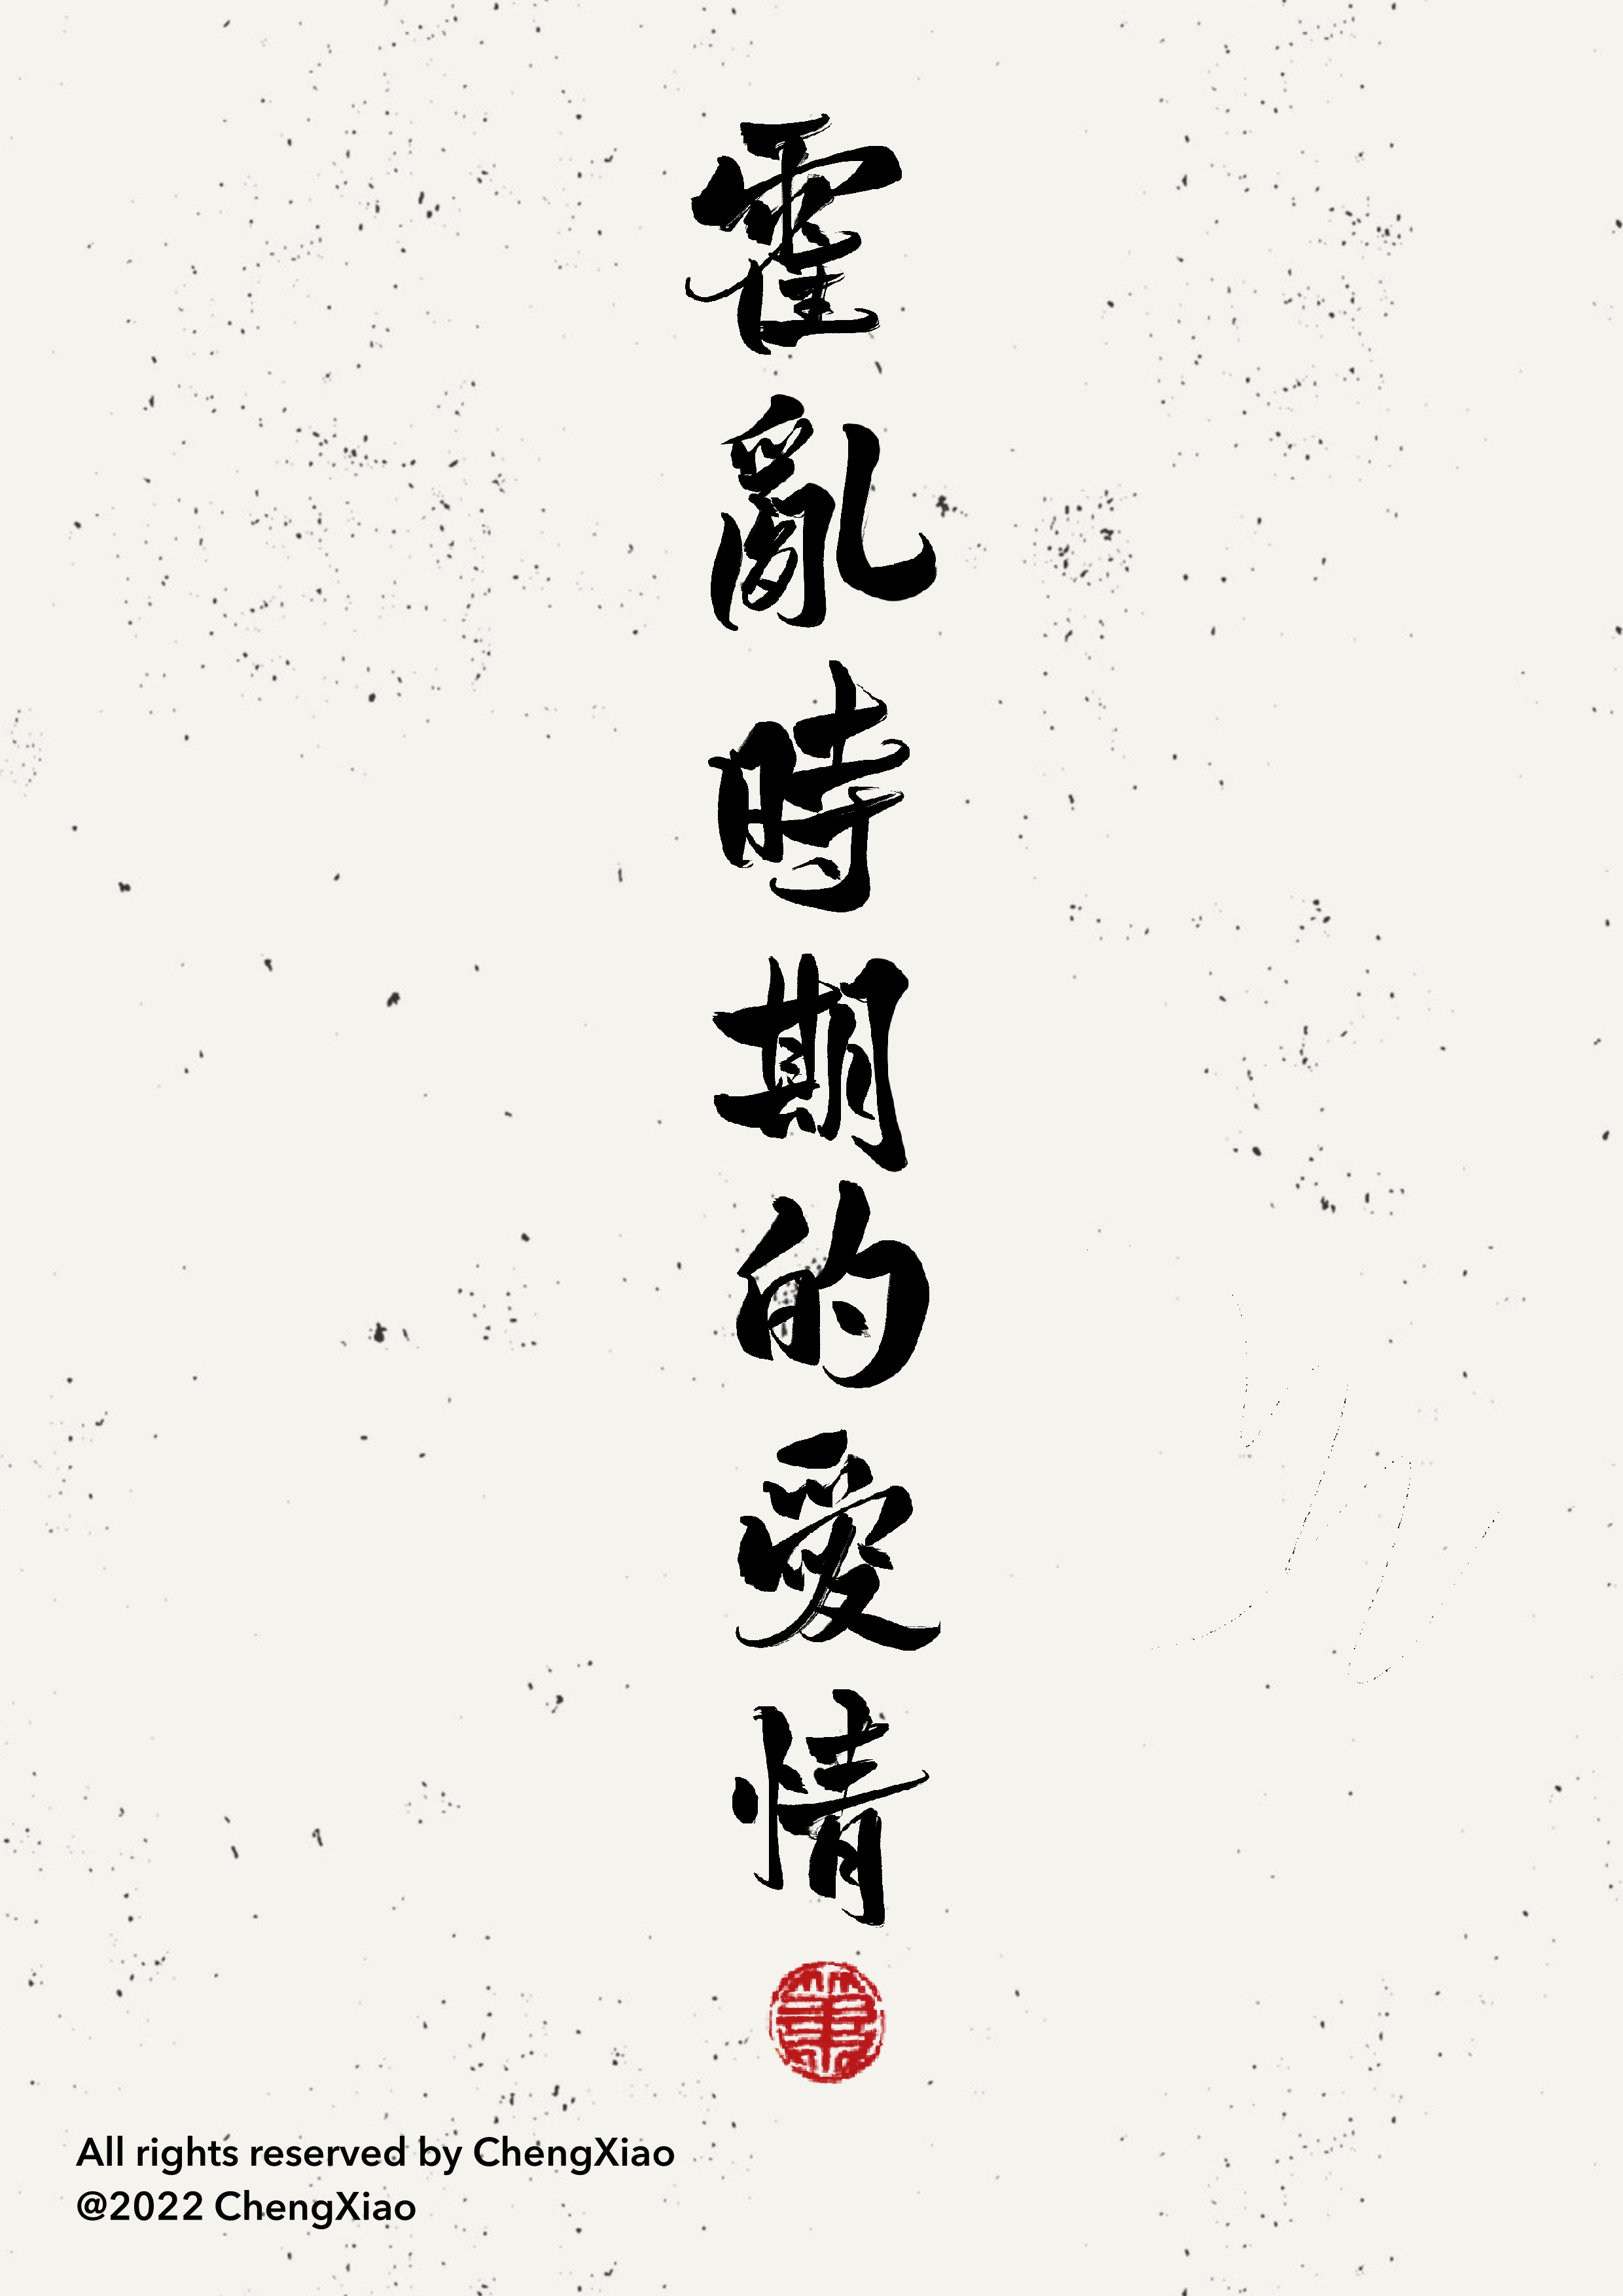 霍亂時期的愛情
All rights reserved by ChengXiao
@2022 ChengXiao